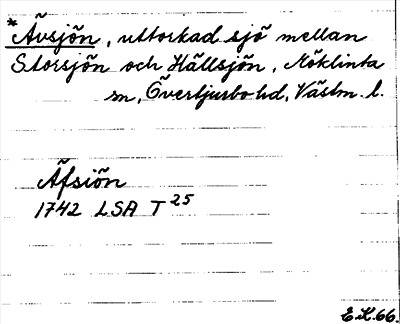 *Åvsjön, uttorkad sjö mellan
Storsjön och Hällsjön, Nöklinta
sn, Övertjurbo hd, Västm. l.
Åfsiön
1742 LSA T 25
E.K.66.